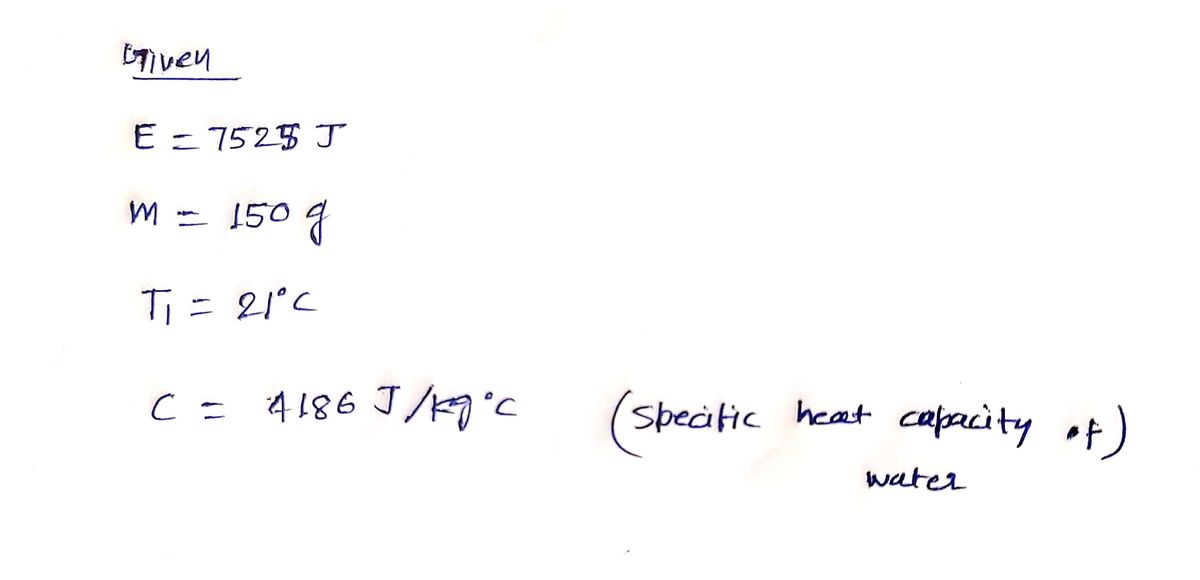 Given
E = 7525 J
m = 150 g
T₁ = 21°C
C = 4186 J/kg°C (Specific heat capacity of)
water